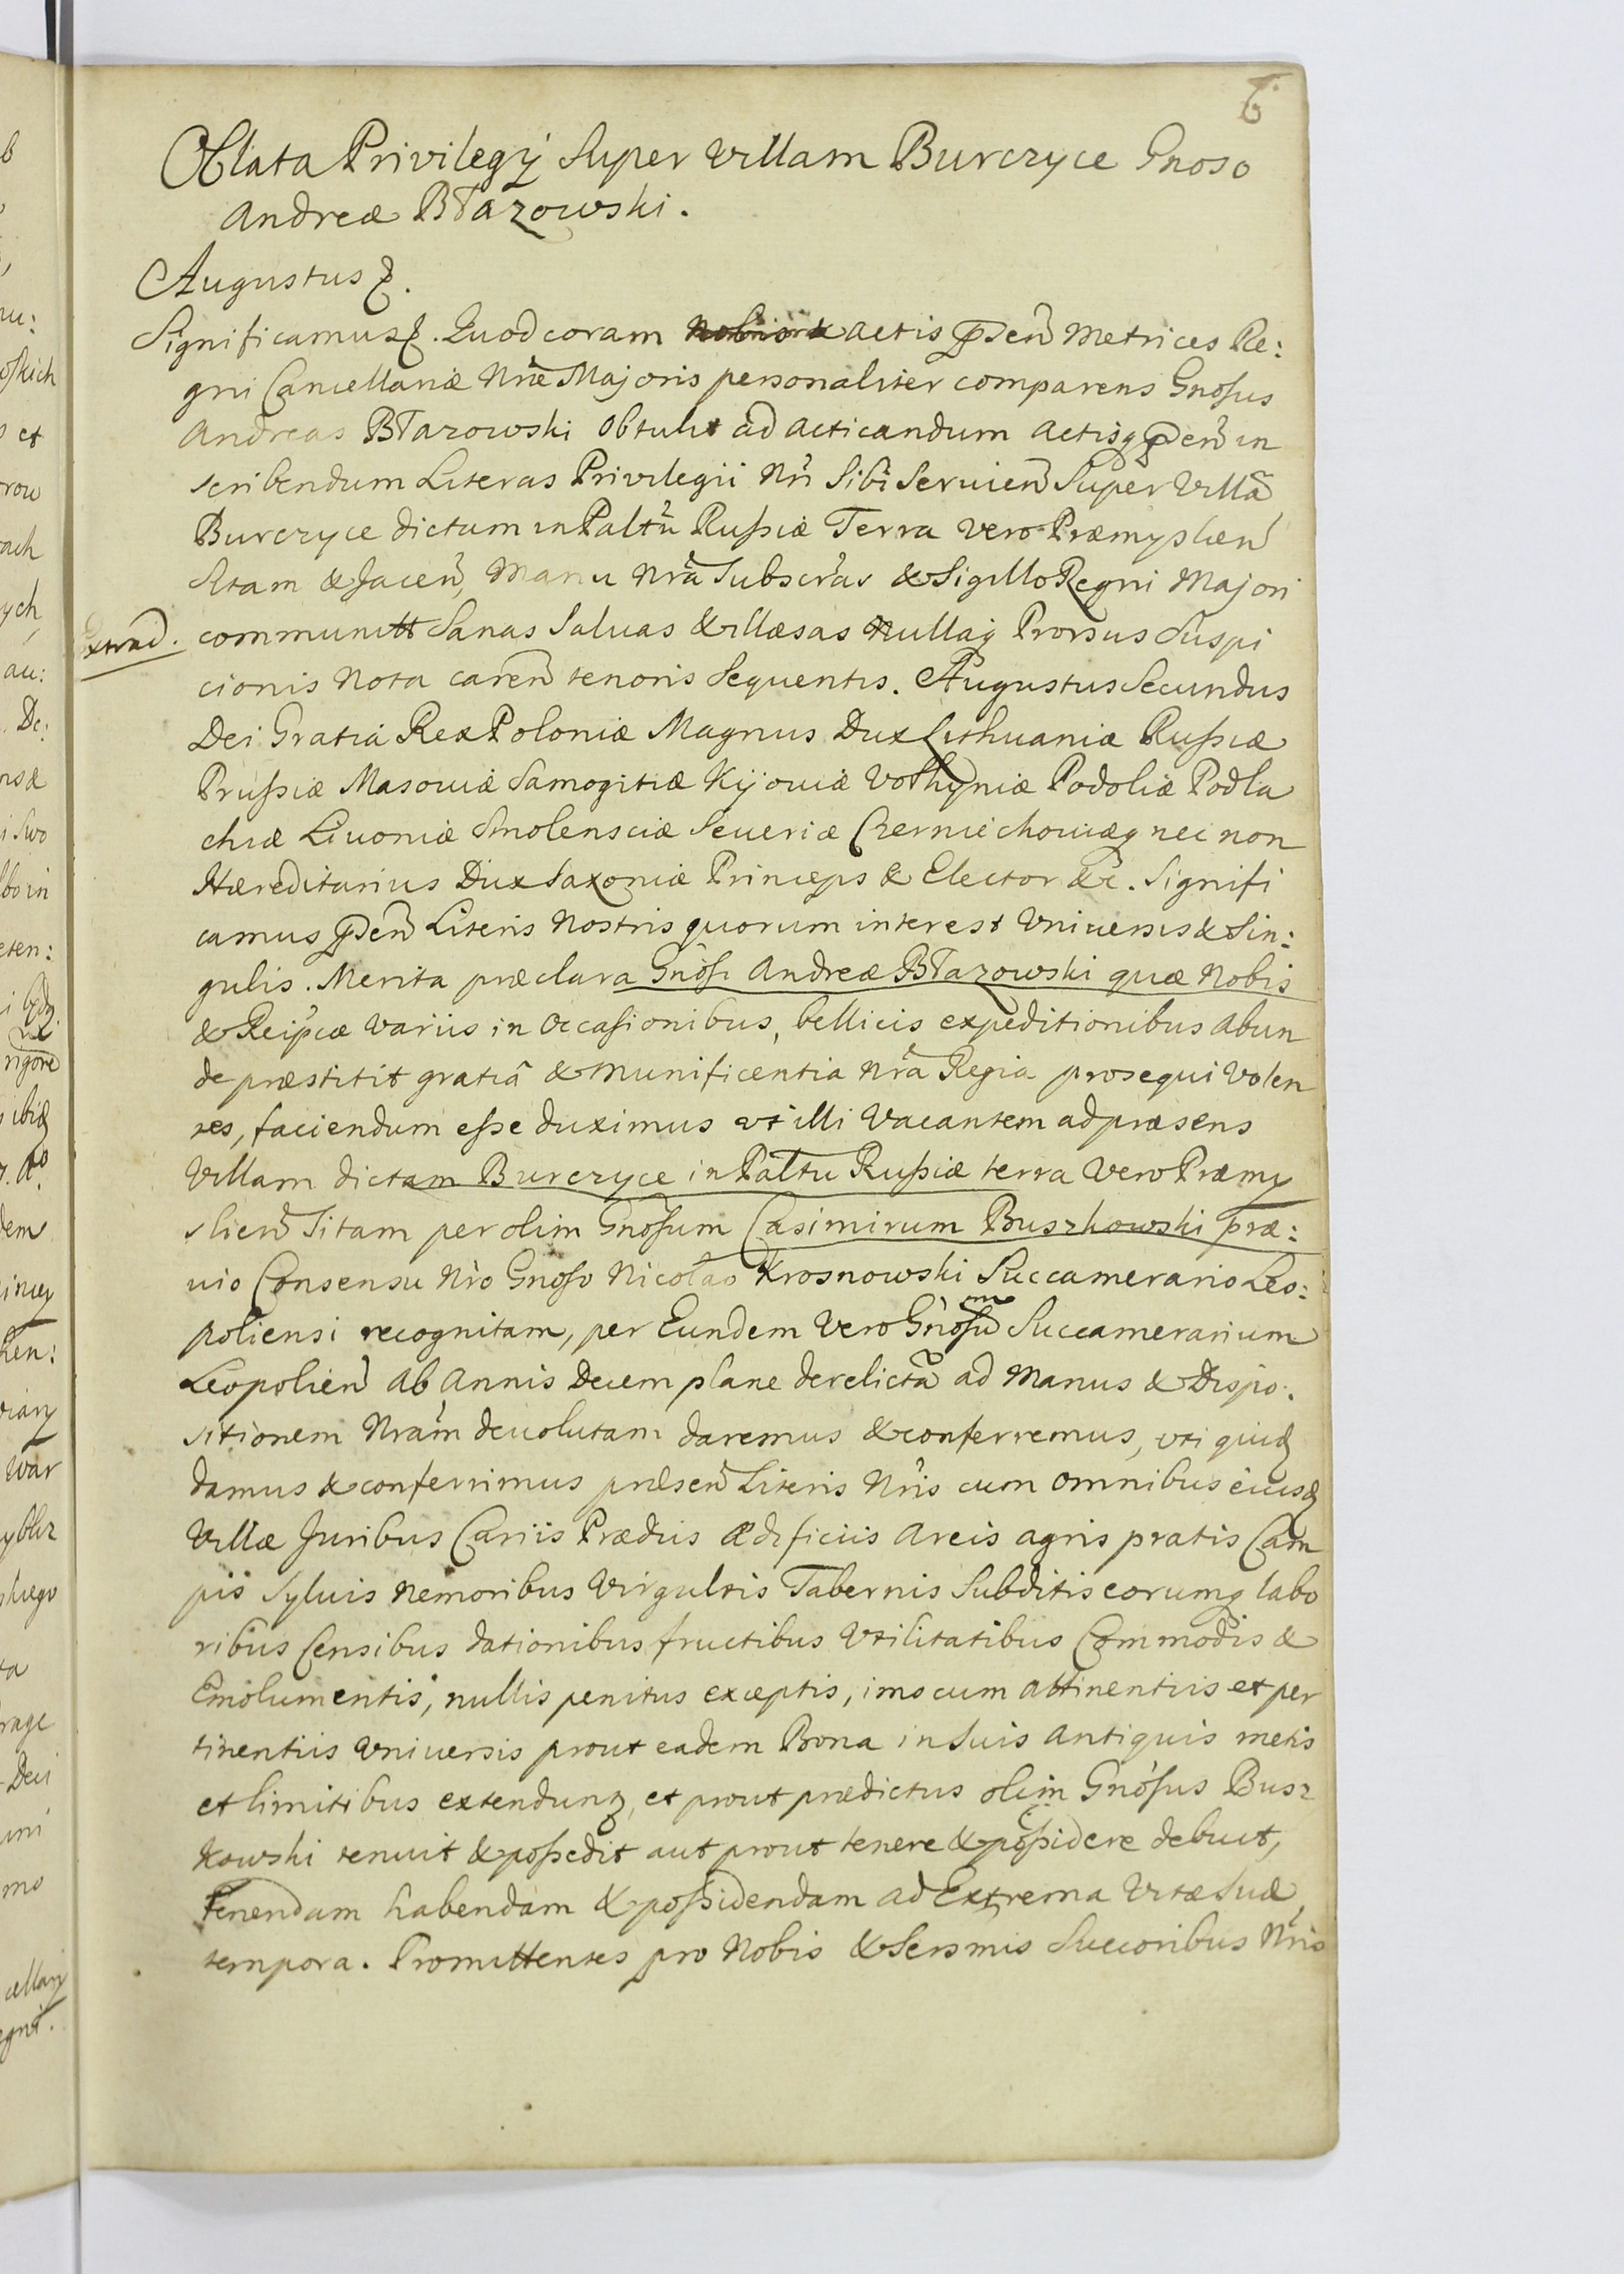 6.
Oblata Privilegÿ Super Villam Burczyce Gnoso
Andreæ Błazowski.
Augustus
Significamus. Quod coram Actis pñen Metrices Re:
gni Cancellariæ Nrẽ Majoris personaliter comparens Gnosus
Andreas Błazowski obtulit ad acticandum Actisq pñen in
scribendum Literas Privilegii Nri Sibi Seruien Super Villã
Burczyce dictam in Paltu Russiæ Terra vero Præmyslien
Sitam & Jacen, Manu Nrã Subscras & Sigillo Regni Majori
Extrad. communitt Sanas Saluas & illæsas Nullaq Prorsus Suspi
cionis Nota caren tenoris Sequentis. Augustus Secundus
Dei Gratia Rex Poloniæ Magnus Dux Lithuaniæ Russiæ
Prussiæ Masouiæ Samogitiæ Kijouiæ Vołhyniæ Podoliæ Podla
chiæ Liuoniæ Smolensciæ Seueriæ Czerniechouiæq nec non
Hæreditarius Dux Saxoniæ Princeps & Elector &c. Signifi
camus pñen Literis Nostris quorum interest Vniuersis & Sin:
gulis. Merita præclara Gnosi Andreæ Błazowski quæ Nobis
& Reipcæ variis in occasionibus, bellicis expeditionibus abun
de præstitit gratiâ & Munificentia Nrã Regia prosequi Volen
tes, faciendum esse duximus vt illi Vacantem ad præsens
Villam dictam Burczyce in Paltu Russiæ terra Vero Præmy
slien Sitam per olim Gnosum Casimirum Buszkowski præ:
uio Consensu Nro Gnoso Nicolao Krosnowski Succamerario Leo:
poliensi recognitam, per Eundem Vero Gnosum Succamerarium
Leopolien ab Annis Decem plane derelictã ad Manus & Dispo.
sitionem Nram deuolutam daremus & conferremus, vti quid
damus & conferrimus præsen Literis Nris cum omnibus eiusd
Villæ Juribus Cariis Prædiis ædificiis areis agris pratis Cam
pis Syluis Nemoribus Virgultis Tabernis Subditis eorumq labo
ribus Censibus dationibus fructibus Vtilitatibus Commodis &
Emolumentis, nullis penitus exceptis, imo cum attinentiis et per
tinentiis Vniuersis prout eadem Bona in Suis Antiquis metis
et limitibus extendunt, et prout prædictus olim Gnosus Busz
kowski tenuit & possedit aut prout tenere & possidere debuit,
tenendam habendam & possidendam ad Extrema Vitæ Suæ
tempora. Promittentes pro Nobis & Sersmis Succoribus Nris